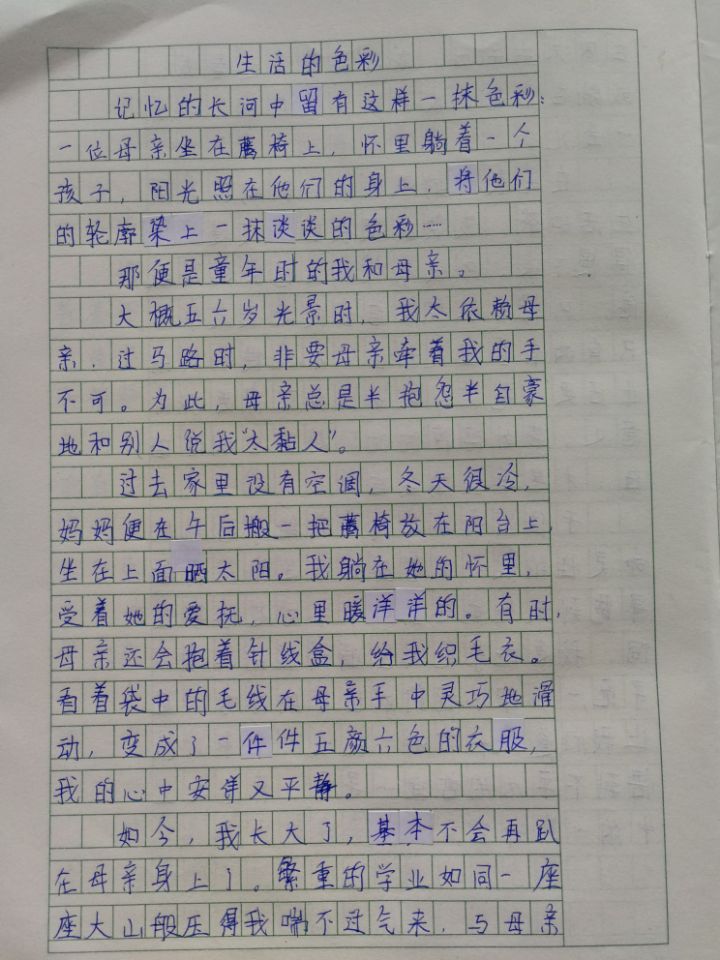 生活的色彩
记忆的长河中留有这样一抹色彩：
一位母亲坐在藤椅上，怀里躺着一个
孩子，阳光照在他们的身上，将他们
的轮廓染上一抹谈谈的色彩……
那便是童年时的我和母亲。
大概五六岁光景时，我太依赖母
亲，过马路时，非要母亲牵着我的手
不可。为此，母亲总是半抱怨半自豪
地和别人说我“太黏人”。
过去家里没有空调，冬天很冷，
妈妈便在午后搬一把藤椅放在阳台上，
坐在上面晒太阳。我躺在她的怀里，
受着她的爱抚，心里暖洋洋的。有时，
母亲还会抱着针线盒，给我织毛衣。
看着袋中的毛线在母亲手中灵巧地滑
动，变成了一件件五颜六色的衣服，
我的心中安详又平静。
如今，我长大了，基本不会再趴
在母亲身上了。繁重的学业如同一座
座大山般压得我喘不过气来，与母亲